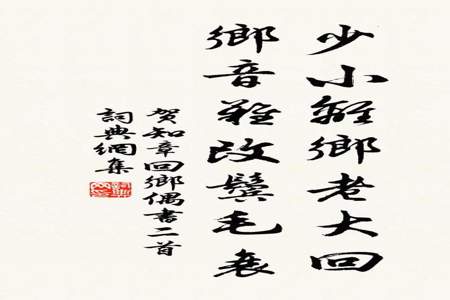 少小離鄉老大回
鄉音難改鬢毛衰
賀知章回鄉偶書二首
詞典網集